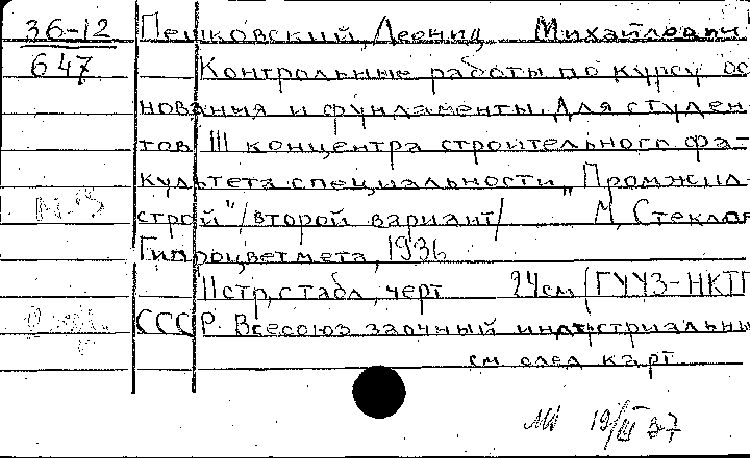 36-12
647
Пешковский, Леонид Михайлович
Контрольные работы по курсу ос
нования и фундаменты. Для студен
тов III концентра строительного фа-
культета специальности „Промжил-
строй" /второй вариант/ М, Стеклогр
Гипроцветмета, 1936
11 стр, с табл, черт 24 см (ГУУЗ-НКТП
СССР. Всесоюз заочный индустриальны
см след карт.
19/III 37